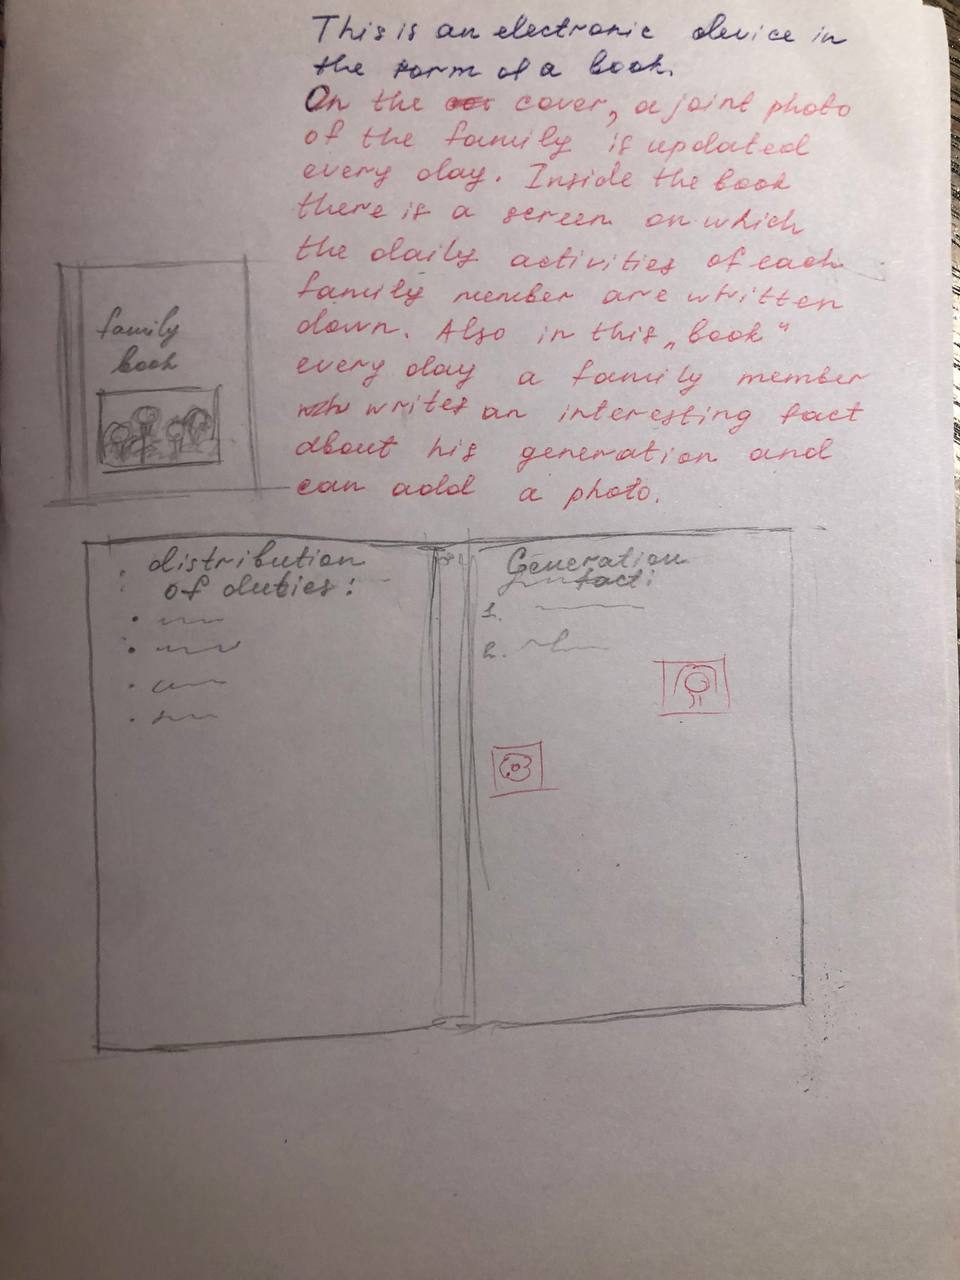 This is an electronic device in
the form of a book.
On the cover, a joint photo
of the family is updated
every day. Inside the book
there is a screen on which
the daily activities of each
family member are written
down. Also in this „book"
every day a family member
writes an interesting fact
about his generation and
can add a photo.
family
book
distribution
of duties:
Generation
fact:
1.
2.